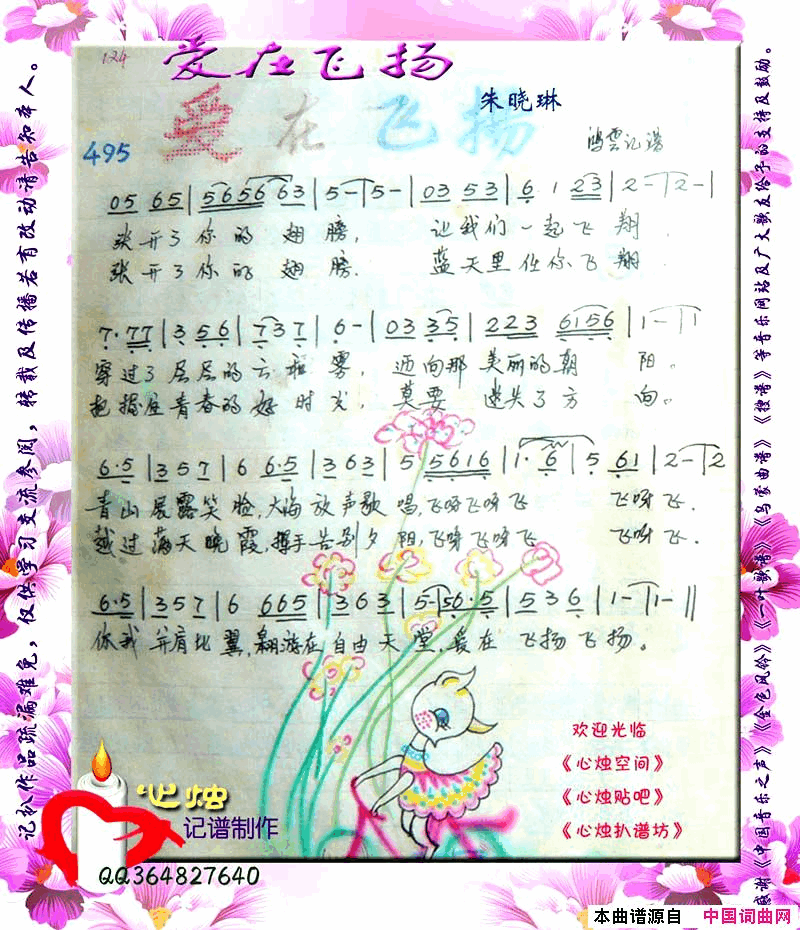 124
爱在飞扬
朱晓琳
爱在飞扬
495
鸿雲记谱
05 65 | 565663 | 5 - | 5 - | 03 53 | 6 1 23 | 2 - | 2 - |
张开了你的翅膀, 让我们一起飞翔.
张开了你的翅膀. 蓝天里任你飞翔.
7·77 | 3 56 | 737 | 6 - | 03 35 | 223 6156 | 1 - | 1
穿过了层层的云和雾, 迈向那美丽的朝阳。
把握住青春的好时光, 莫要迷失了方向。
6·5 | 3 5 7 | 6 6·5 | 3 6 3 | 5 5616 | 1· 6 | 5 61 | 2 - | 2
青山展露笑脸,大海放声歌唱,飞呀飞呀飞 飞呀飞.
越过满天晚霞,挥手告别夕阳,飞呀飞呀飞 飞呀飞.
6·5 | 3 5 7 | 6 665 | 3 6 3 | 5 - | 56·5 | 5 3 6 | 1 - | 1 - ||
你我并肩比翼,翱游在自由天堂,爱在飞扬飞扬。
欢迎光临
《心烛空间》
《心烛贴吧》
《心烛扒谱坊》
心烛
记谱制作
QQ364827640
记扒作品疏漏难免,仅供学习交流参阅,转载及传播若有改动请告知本人。
感谢《中国音乐之声》《金色风铃》《一叶歌谱》《乌蒙曲谱》《搜谱》等音乐网站及广大歌友给予的支持及鼓励。
本曲谱源自 中国词曲网